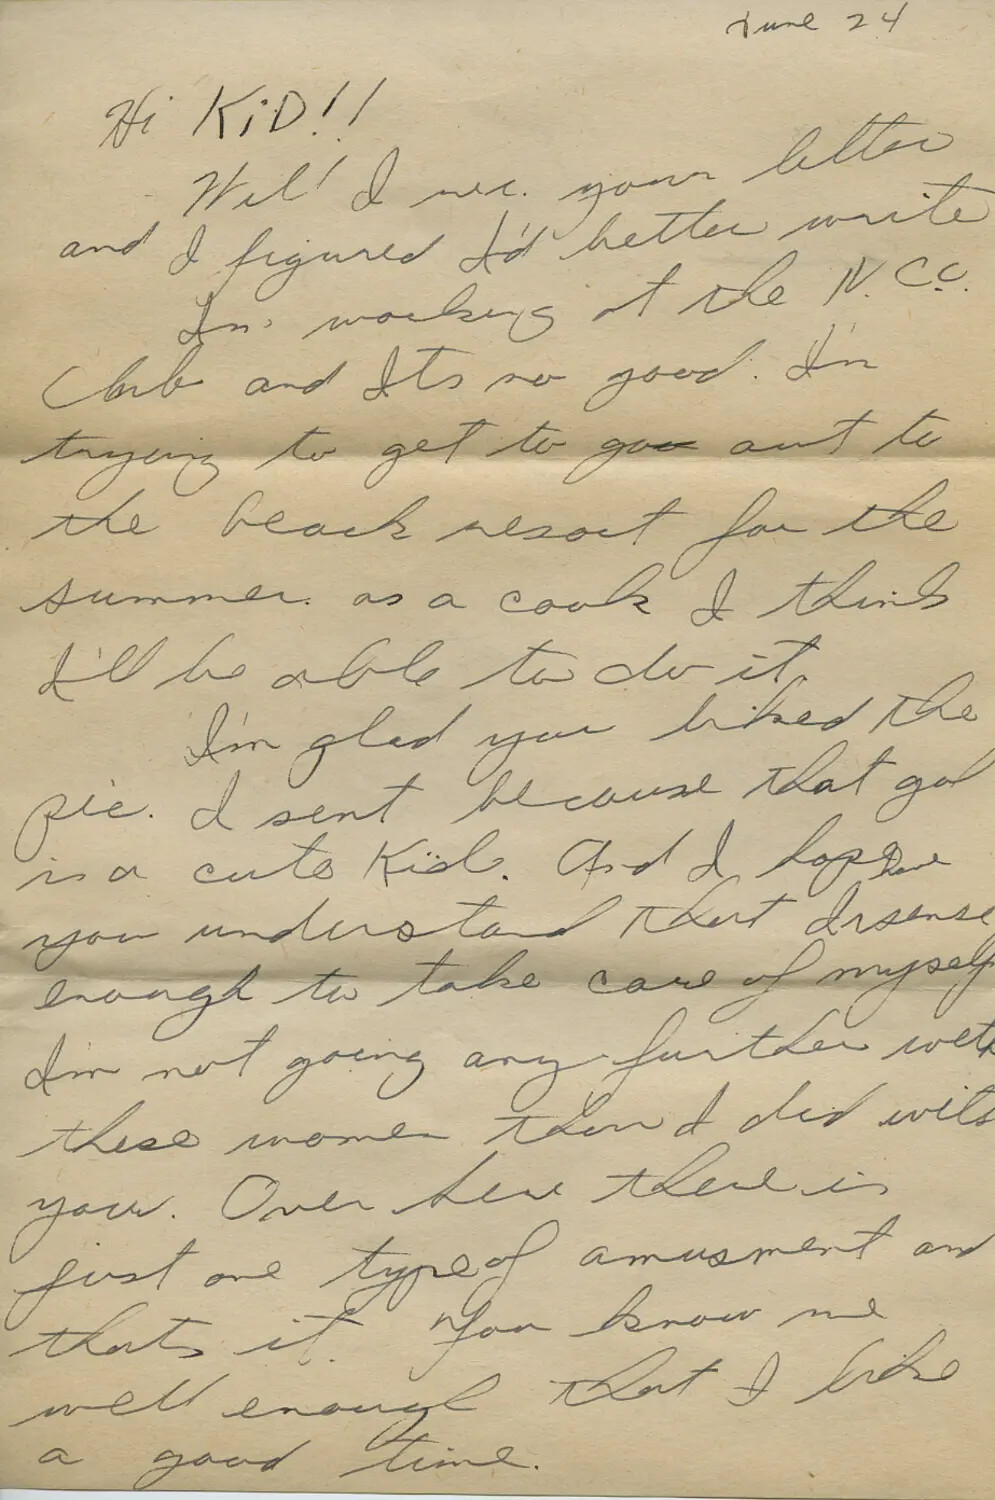 June 24
Hi KiD!!
Well! I rec. your letter
and I figured I'd better write
I'm working at the N.C.O.
Club and Its no good. I'm
trying to get to go out to
the beach resort for the
summer. as a cook I think
I'll be able to do it.
I'm glad you liked the
pic. I sent because that gal
is a cute Kid. And I hope
you understand that I have sense
enough to take care of myself
I'm not going any further with
these women than I did with
you. Over here there is
just one type of amusment and
thats it. You know me
well enough that I like
a good time.